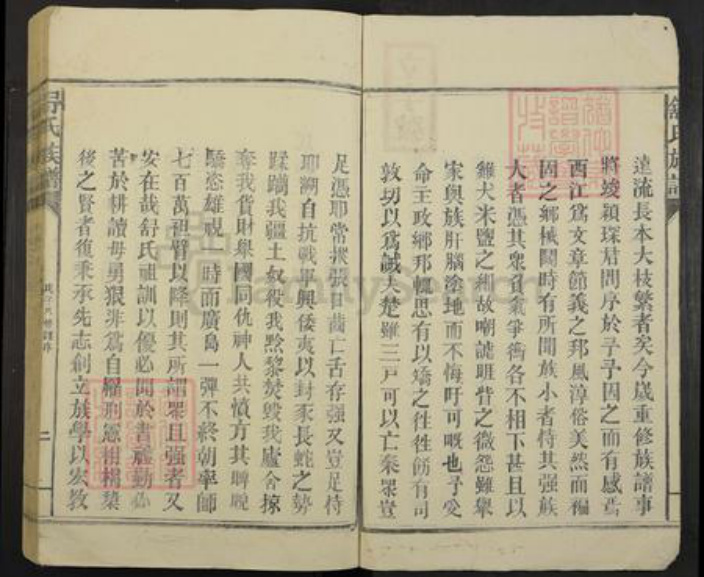 舒氏族譜
遠流長本大枝繁者矣今歲重修族譜事
將竣穎琛君問序於予予因之而有感焉
西江為文章節義之邦風淳俗美然而褊
固之鄉械鬬時有所聞族小者恃其強族
大者憑其眾負氣爭衡各不相下甚且以
雞犬米鹽之細故嘲謔眦眥之微怨雖舉
家與族肝腦塗地而不悔吁可嘅也予受
命主政鄉邦輒思有以矯之往往飭有司
敦切以為誡夫楚雖三戶可以亡秦眾豈
足憑耶常摐張日齒亡舌存強又豈足恃
耶溯自抗戰軍興倭夷以封豕長蛇之勢
蹂躪我疆土奴役我黔黎焚毀我廬舍掠
奪我貨財舉國同仇神人共憤方其睥睨
驕恣雄視一時而廣島一彈不終朝率師
七百萬袒臂以降則其所謂眾且強者又
安在哉舒氏祖訓以優必聞於書禮勤必
苦於耕讀毋勇狠非為自罹刑憲栩栩
後之賢者復秉承先志創立族學以宏教
舒氏族譜
序
二
FamilySearch